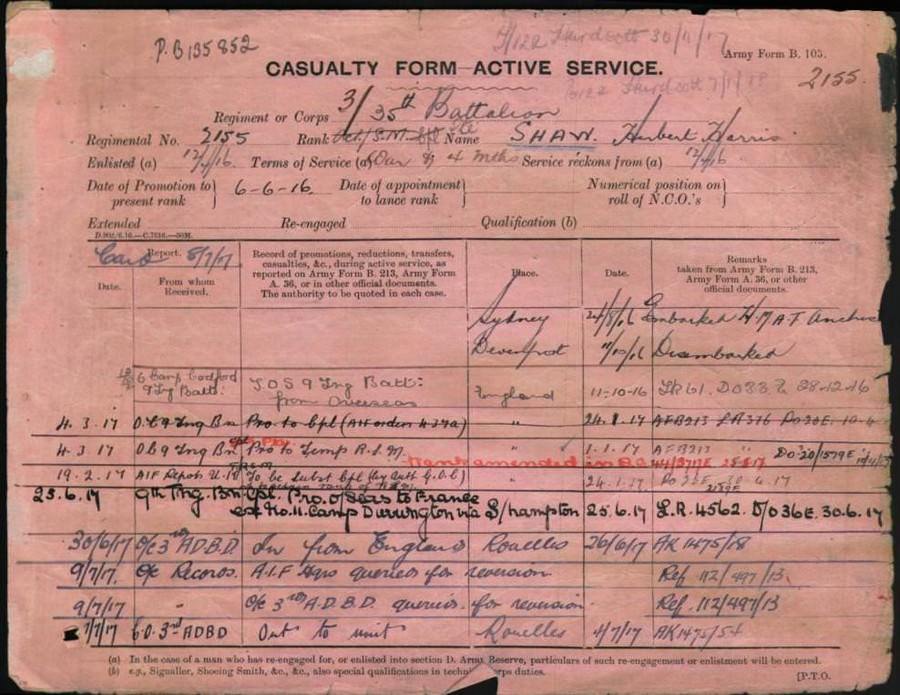 P.B 135852
Hurdcott 30/4/17
Army Form B. 103.
CASUALTY FORM—ACTIVE SERVICE.
2155.
Hurdcott 7/1/18
Regiment or Corps 3/35th Battalion
Regimental No. 2155 Rank Name SHAW. Herbert Harris
Enlisted (a) 12/4/16. Terms of Service (a) Dur & 4 mths Service reckons from (a) 12/4/16
Date of Promotion to present rank } 6-6-16. Date of appointment to lance rank } Numerical position on roll of N.C.O.'s }
Extended Re-engaged Qualification (b)
Card 8/7/17
Report.
Date. From whom Received.
Record of promotions, reductions, transfers, casualties, &c., during active service, as reported on Army Form B. 213, Army Form A. 36, or in other official documents. The authority to be quoted in each case.
Place.
Date.
Remarks taken from Army Form B. 213, Army Form A. 36, or other official documents.
Sydney 24/8/16 Embarked H.M.A.T.
Devonport 11/10/16 Disembarked
6 Camp Codford 9 Tng Battn. T.O.S 9 Tng Batt: from Overseas England 11-10-16 28-12-16
4.3.17 O.C 9 Tng Bn Pro to Cpl (AIF orders 437a) " 24.1.17 AFB213
4.3.17 O b 9 Tng Bn Pro to Temp R.S.M. " 1.1.17 AFB213 " DO 20/1579E
Rank amended
19.2.17 AIF Depots U.K To be subst Cpl (by auth G.O.C) " 24.1.17
25.6.17 9th Trg. Bn Cpl. Pro. O/Seas to France
ex No.11. Camp Durrington via S/hampton 25.6.17 L.R. 4562. D/O 36E. 30.6.17
30/6/17 O/C 3rd ADBD. In from England Rouelles 26/6/17 AK 1475/48
9/7/17. O/c Records. A.I.F Hqrs queried for reversion Ref 112/497/13.
9/7/17 " O/c 3rd A.D.B.D. queried for reversion Ref. 112/497/13
7/7/17 C.O. 3rd ADBD Out to unit Rouelles 4/7/17 AK1475/54
(a) In the case of a man who has re-engaged for, or enlisted into section D. Army Reserve, particulars of such re-engagement or enlistment will be entered.
(b) e.g., Signaller, Shoeing Smith, &c., &c., also special qualifications in technical Corps duties.
[P.T.O.